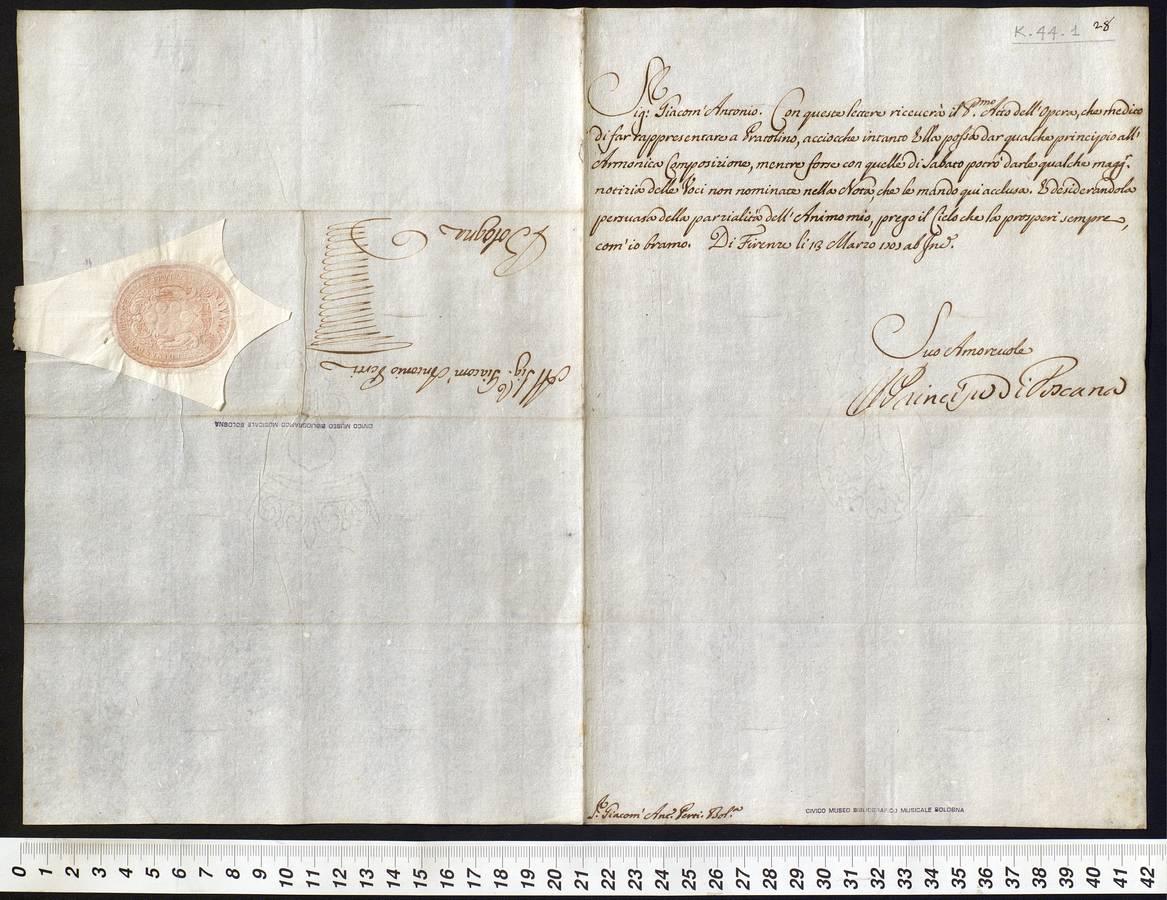 K.44.1 28
Sig: Giacom' Antonio. Con queste lettere riceverà il P.mo Atto dell'Opera, che medito
di far rappresentare a Pratolino, acciocche intanto Ella possa dar qualche principio all'
Armonica Composizione, mentre forse con quelle di Sabato potrò darle qualche magg.r
notizia delle Voci non nominate nella Nota, che le mando qui acclusa. E desiderandola
persuasa della parzialità dell'Animo mio, prego il Cielo che la prosperi sempre,
com'io bramo. Di Firenze li 13 Marzo ab Inc.e
Suo Amorevole
Il Principe di Toscana
S.r Giacom' Ant.o Perti. Bol.a
CIVICO MUSEO BIBLIOGRAFICO MUSICALE BOLOGNA
Al Sig: Giacom' Antonio Perti
Bologna
CIVICO MUSEO BIBLIOGRAFICO MUSICALE BOLOGNA
0 1 2 3 4 5 6 7 8 9 10 11 12 13 14 15 16 17 18 19 20 21 22 23 24 25 26 27 28 29 30 31 32 33 34 35 36 37 38 39 40 41 42